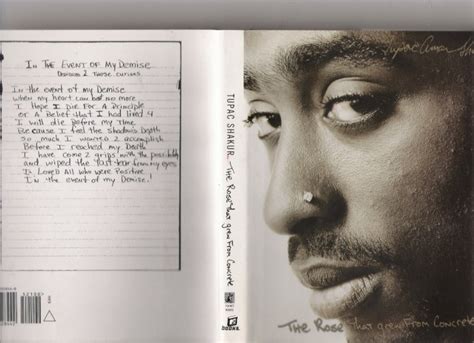 In The Event of My Demise
Dedicated 2 Those curious
In the event of my Demise
when my heart can beat no more
I Hope I Die For A Principle
or A Belief that I had Lived 4
I will die Before my Time
Because I feel the shadow's Depth
so much I wanted 2 accomplish
Before I reached my Death
I have come 2 grips with the possibility
and wiped the last tear from my eyes
I Loved All who were Positive
In the event of my Demise!
TUPAC SHAKUR
The Rose That grew From Concrete
MTV
BOOKS
Tupac Amaru
The Rose That grew From Concrete